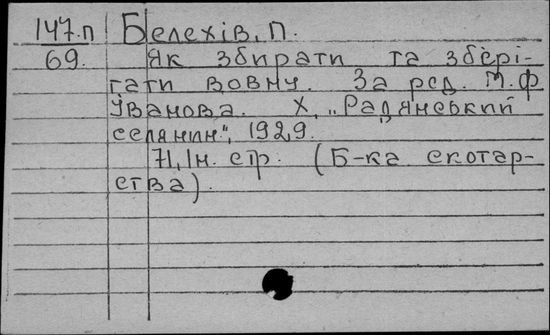 147.п Белехів, П.
69. Як збирати та збері-
гати вовну. За ред. М.Ф
Іванова. Х, „Радянський
селянин", 1929.
71, 1н. стр. (Б-ка скотар-
ства).